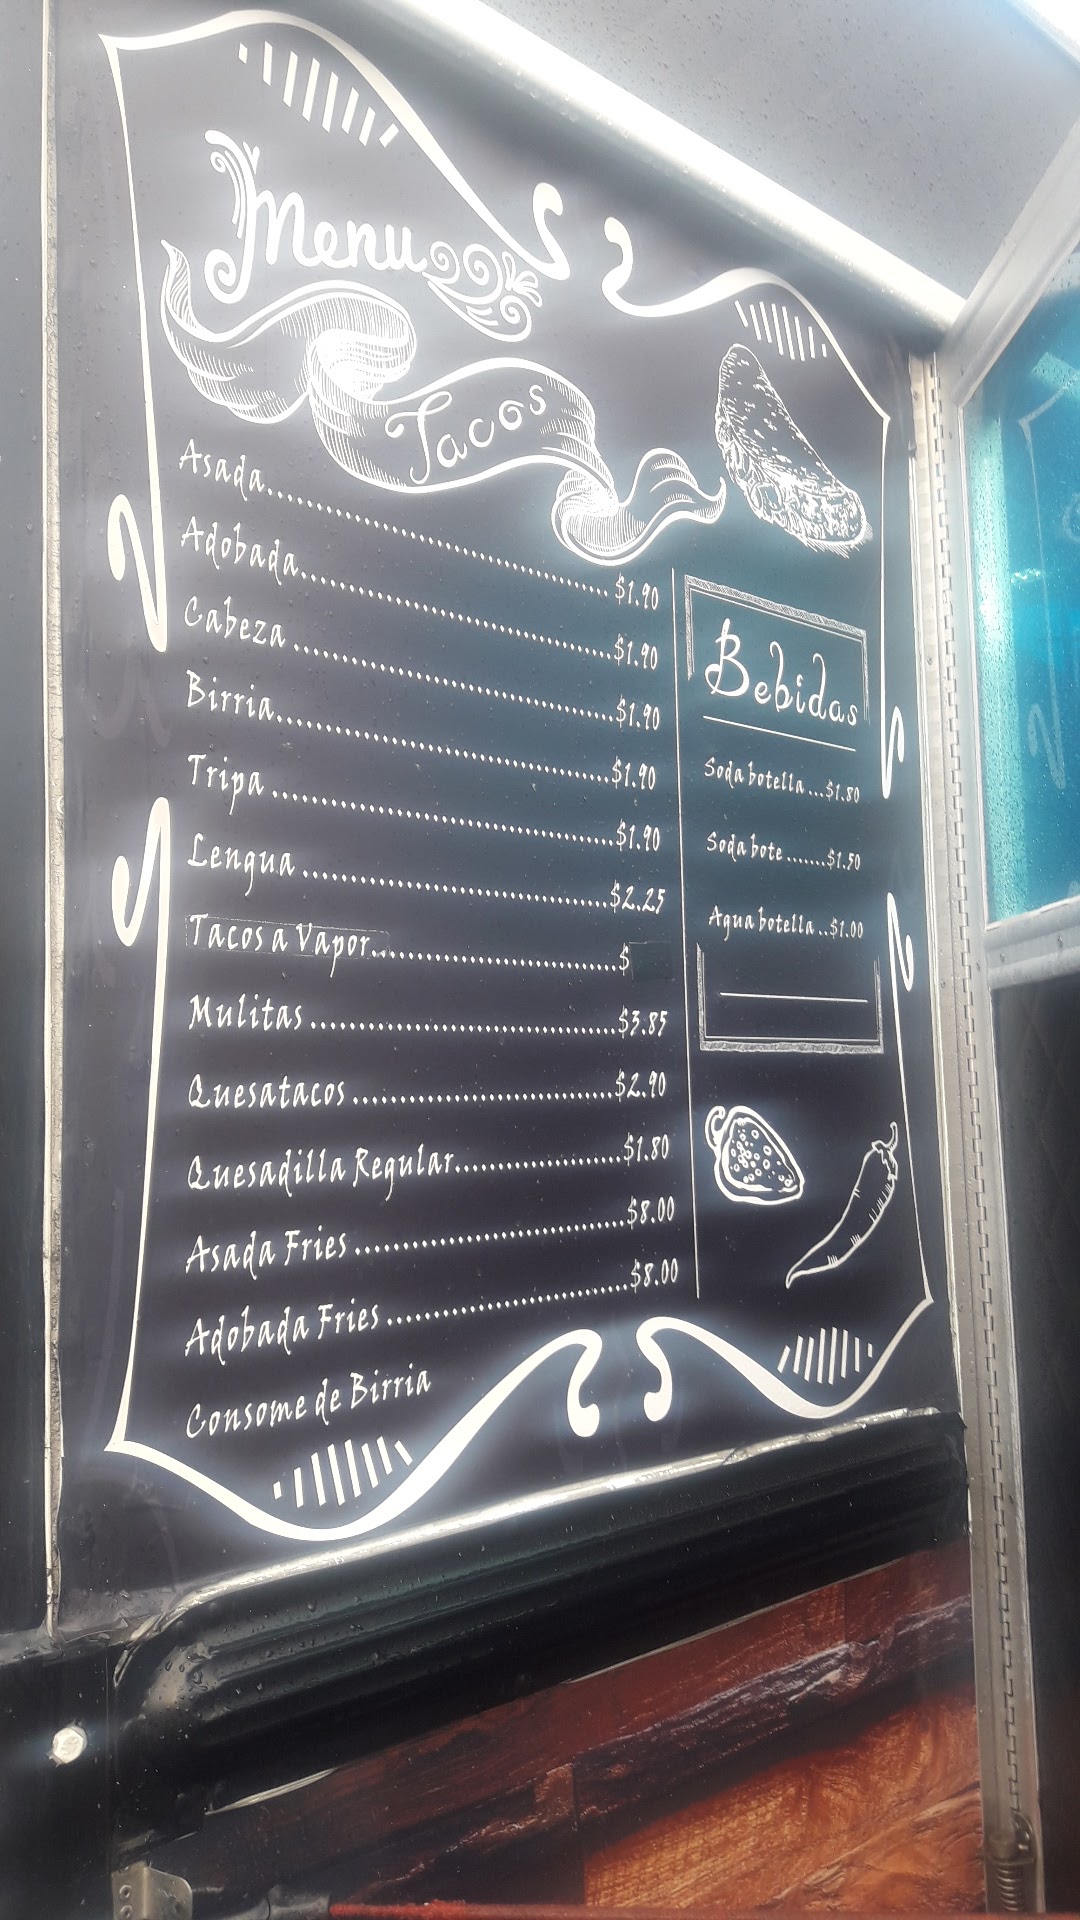 Menu
Tacos
Asada........................................$1.90
Adobada........................................$1.90
Cabeza........................................$1.90
Birria........................................$1.90
Tripa........................................$1.90
Lengua........................................$2.25
Tacos a Vapor..............................$
Mulitas........................................$3.85
Quesatacos..............................$2.90
Quesadilla Regular....................$1.80
Asada Fries..............................$8.00
Adobada Fries..............................$8.00
Consome de Birria
Bebidas
Soda botella...$1.80
Soda bote.......$1.50
Agua botella..$1.00